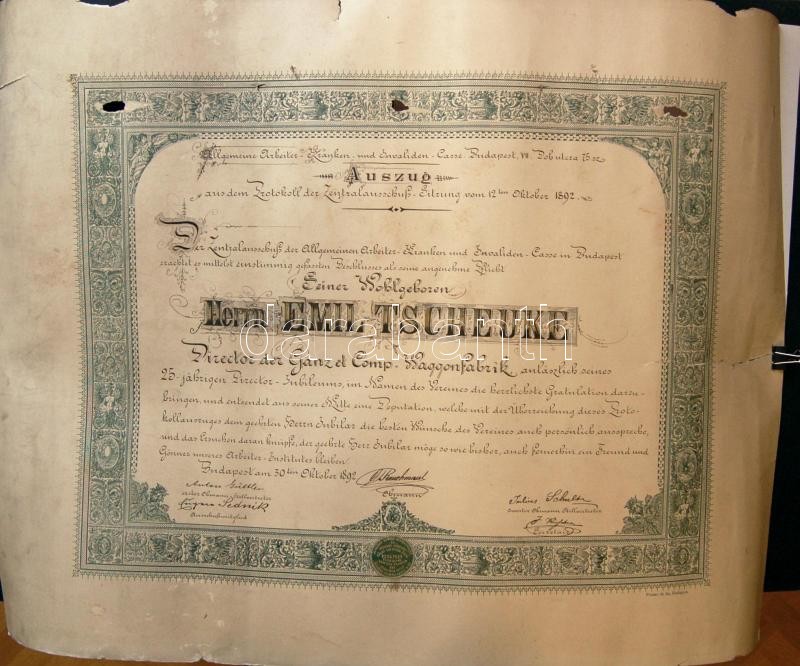 Allgemeine Arbeiter-Kranken-und Invaliden-Casse Budapest, VII Dob utcza 75 sz
Auszug
aus dem Protokoll der Zentralausschuß-Sitzung vom 12ten Oktober 1892.
Der Zentralausschuß der Allgemeinen Arbeiter-Kranken und Invaliden-Casse in Budapest
erachtet es mittelst einstimmig gefassten Beschlusses als seine angenehme Pflicht
Seiner Wohlgeboren
Herrn EMIL TSCHEUKE
darabanth
Director der Ganz et Comp-Waggonfabrik, anläszlich seines
25-jährigen Director-Jubileums, im Namen des Vereines die herzlichste Gratulation darzu-
bringen, und entsendet aus seiner Mitte eine Deputation, welche mit der Überreichung dieses Proto-
kollauszuges dem geehrten Herrn Jubilar die besten Wünsche des Vereines auch persönlich ausspreche,
und das Ersuchen daran knüpfe, der geehrte Herr Jubilar möge so wie bisher, auch fernerhin ein Freund und
Gönner unseres Arbeiter-Institutes bleiben.
Budapest am 30ten Oktober 1892
Obmann
Anton
erster Obmann-Stellvertreter
Eugen Sednik
Ausschußmitglied
Julius Schulter
zweiter Obmann Stellvertreter